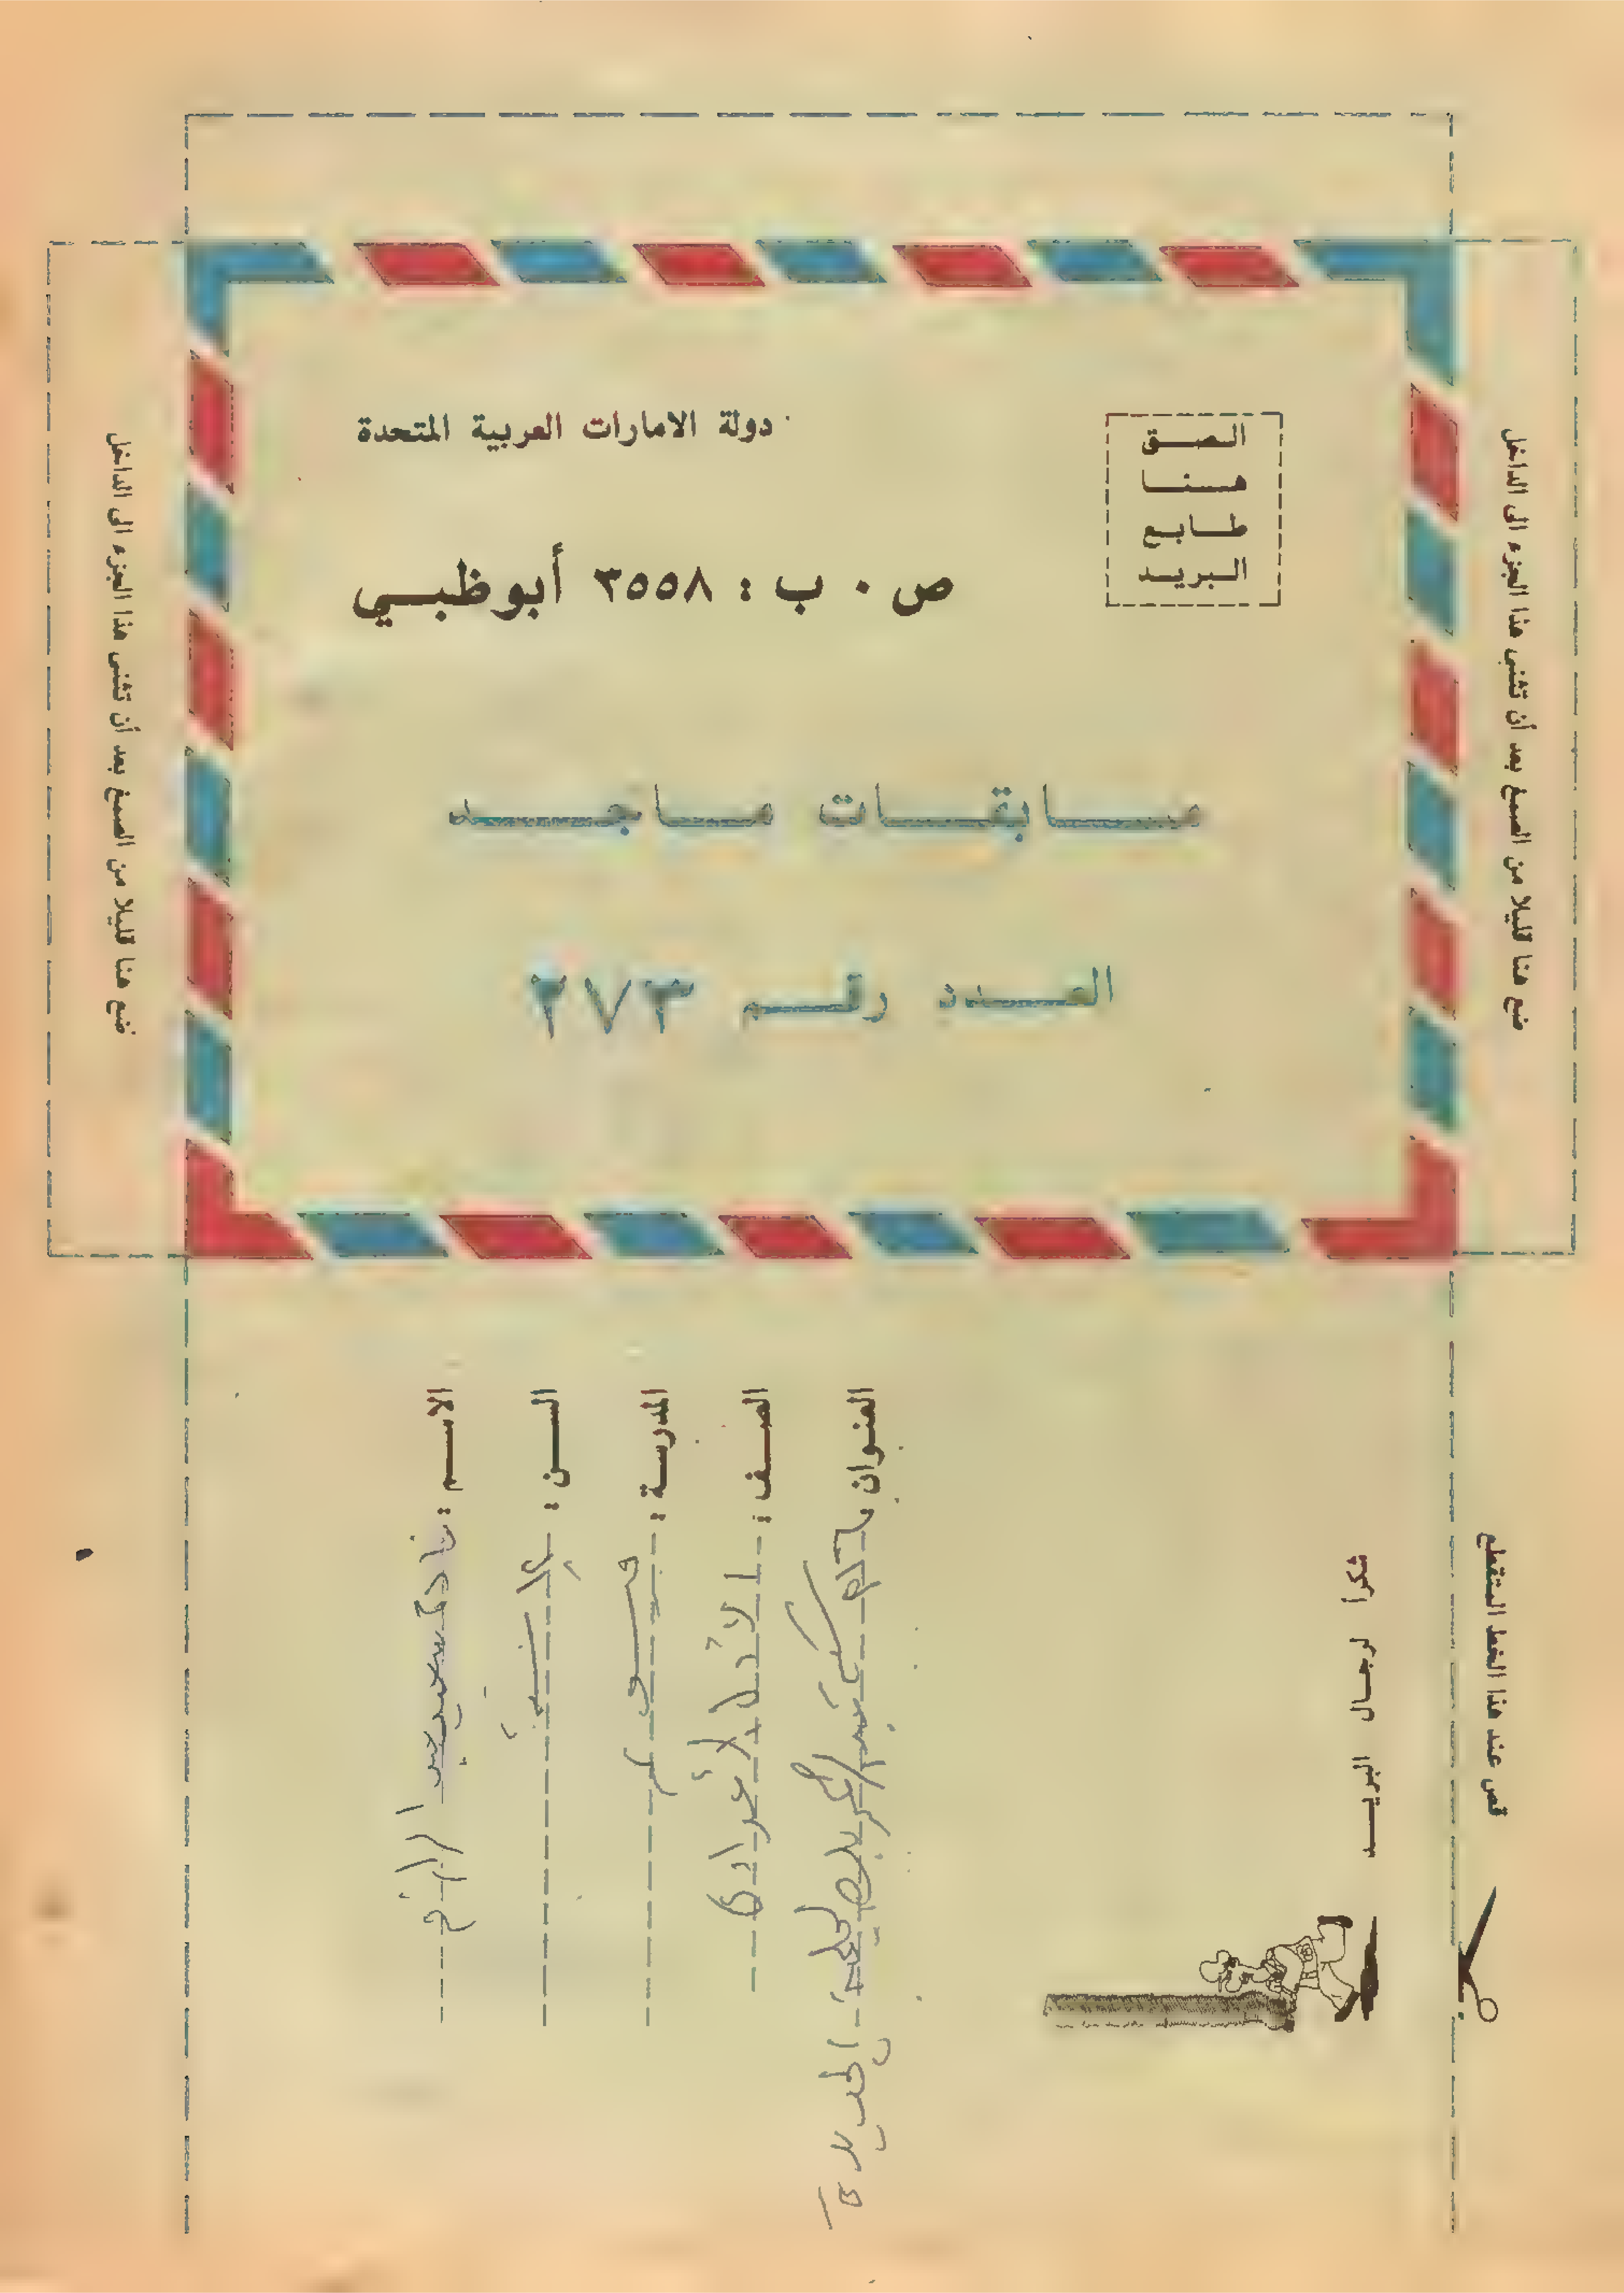 دولة الامارات العربية المتحدة
الصق
هنا
طابع
البريد
ص ٠ ب : ٣٥٥٨ أبوظبي
مسابقات ماجد
العدد رقم ٢٧٣
ضع هنا قليلا من الصمغ بعد أن تثنى هذا الجزء الى الداخل
ضع هنا قليلا من الصمغ بعد أن تثنى هذا الجزء الى الداخل
الاسم :
السن : سنة
المدرسة :
الصف : الاعدادى
العنوان
شكرا لرجال البريد
قص عند هذا الخط المتقطع